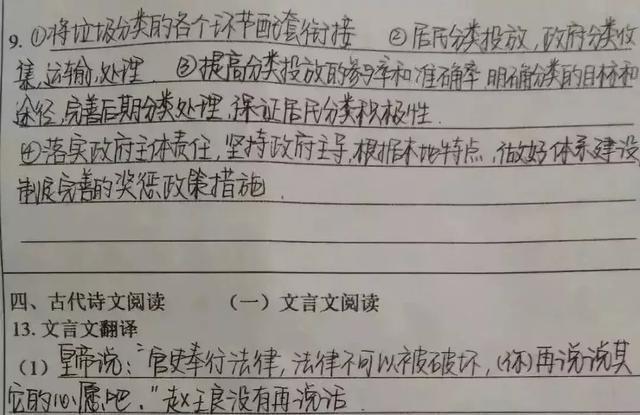 9. ①将垃圾分类的各个环节配套衔接 ②居民分类投放,政府分类收
集,运输,处理. ③提高分类投放的参与率和准确率,明确分类的目标和
途径,完善后期分类处理,保证居民分类积极性.
④落实政府主体责任,坚持政府主导,根据本地特点,做好体系建设
制定完善的奖惩政策措施.
四、古代诗文阅读 (一)文言文阅读
13. 文言文翻译
(1) 皇帝说:“官吏奉行法律,法律不可以被破坏,(你)再说说其
它的心愿吧.”赵王良没有再说话.